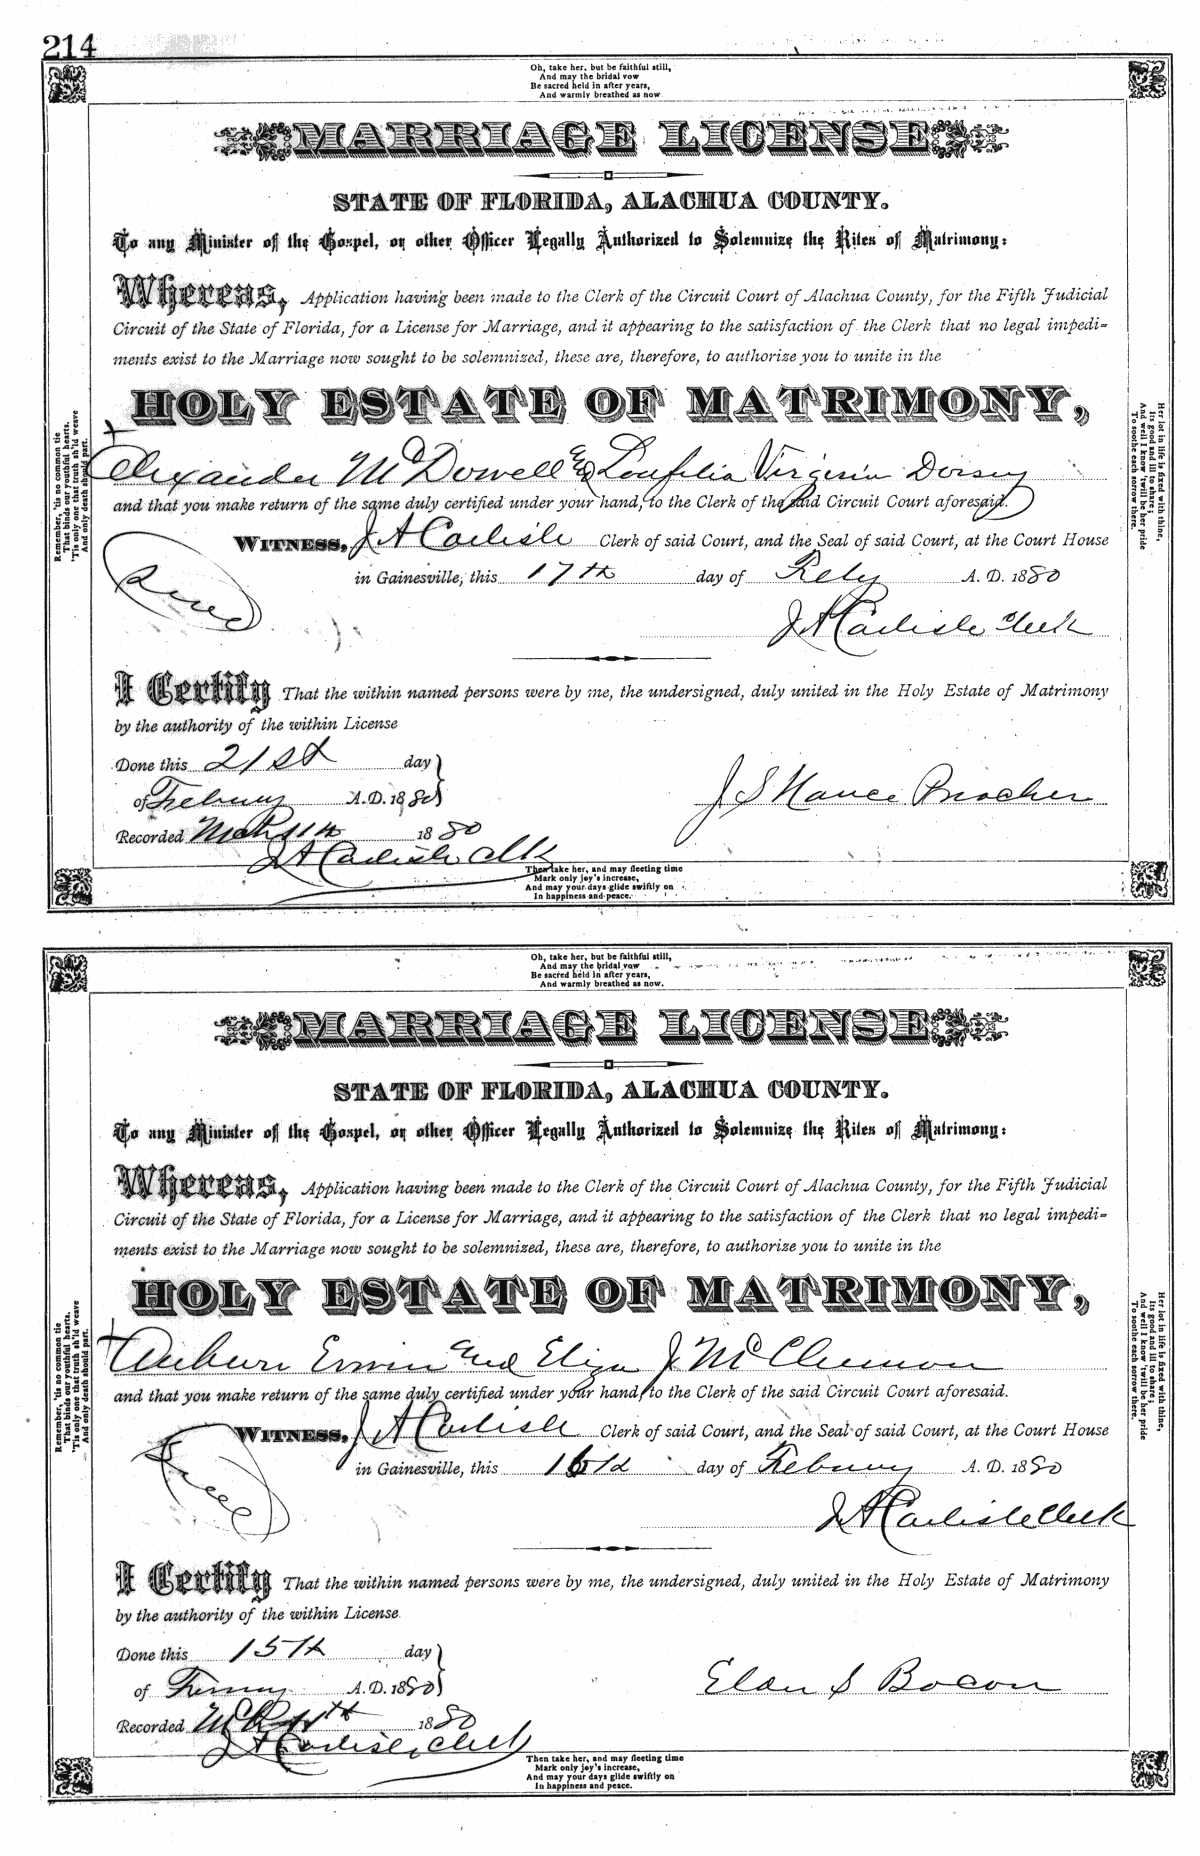 214
Oh, take her, but be faithful still,
And may the bridal vow
Be sacred held in after years,
And warmly breathed as now
MARRIAGE LICENSE
STATE OF FLORIDA, ALACHUA COUNTY.
To any Minister of the Gospel, or other Officer Legally Authorized to Solemnize the Rites of Matrimony:
Whereas, Application having been made to the Clerk of the Circuit Court of Alachua County, for the Fifth Judicial
Circuit of the State of Florida, for a License for Marriage, and it appearing to the satisfaction of the Clerk that no legal impedi-
ments exist to the Marriage now sought to be solemnized, these are, therefore, to authorize you to unite in the
HOLY ESTATE OF MATRIMONY,
Remember, 'tis no common tie
That binds our youthful hearts.
'Tis only one that truth sh'ld weave
And only death should part.
Her lot in life is fixed with thine,
Its good and ill to share;
And well I know 'twill be her pride
To soothe each sorrow there.
Alexander McDowell and Virginia Dorsey
and that you make return of the same duly certified under your hand, to the Clerk of the said Circuit Court aforesaid.
WITNESS, J A Carlisle Clerk of said Court, and the Seal of said Court, at the Court House
in Gainesville, this 17th day of Feby A. D. 1880
J A Carlisle Clerk
I Certify That the within named persons were by me, the undersigned, duly united in the Holy Estate of Matrimony
by the authority of the within License
Done this 21st day
of A.D. 1880
J S Nance
Recorded 1880
J A Carlisle Clk
Then take her, and may fleeting time
Mark only joy's increase,
And may your days glide swiftly on
In happiness and peace.
Oh, take her, but be faithful still,
And may the bridal vow
Be sacred held in after years,
And warmly breathed as now.
MARRIAGE LICENSE
STATE OF FLORIDA, ALACHUA COUNTY.
To any Minister of the Gospel, or other Officer Legally Authorized to Solemnize the Rites of Matrimony:
Whereas, Application having been made to the Clerk of the Circuit Court of Alachua County, for the Fifth Judicial
Circuit of the State of Florida, for a License for Marriage, and it appearing to the satisfaction of the Clerk that no legal impedi-
ments exist to the Marriage now sought to be solemnized, these are, therefore, to authorize you to unite in the
HOLY ESTATE OF MATRIMONY,
Remember, 'tis no common tie
That binds our youthful hearts.
'Tis only one that truth sh'ld weave
And only death should part.
Her lot in life is fixed with thine,
Its good and ill to share;
And well I know 'twill be her pride
To soothe each sorrow there.
Auburn Erwin and Eliza J
and that you make return of the same duly certified under your hand, to the Clerk of the said Circuit Court aforesaid.
WITNESS, J A Carlisle Clerk of said Court, and the Seal of said Court, at the Court House
in Gainesville, this day of A. D. 1880
J A Carlisle Clerk
I Certify That the within named persons were by me, the undersigned, duly united in the Holy Estate of Matrimony
by the authority of the within License
Done this 15th day
of A.D. 1880
S Bocon
Recorded 1880
J A Carlisle Clerk
Then take her, and may fleeting time
Mark only joy's increase,
And may your days glide swiftly on
In happiness and peace.